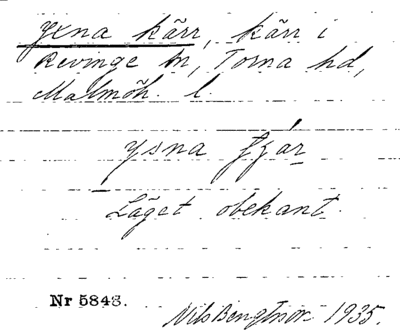 Yxna kärr, kärr i
Revinge sn, Torna hd,
Malmöh. l.
ysna tjár
Läget obekant.
Nr 5848.
Nils Bengtsson 1935.